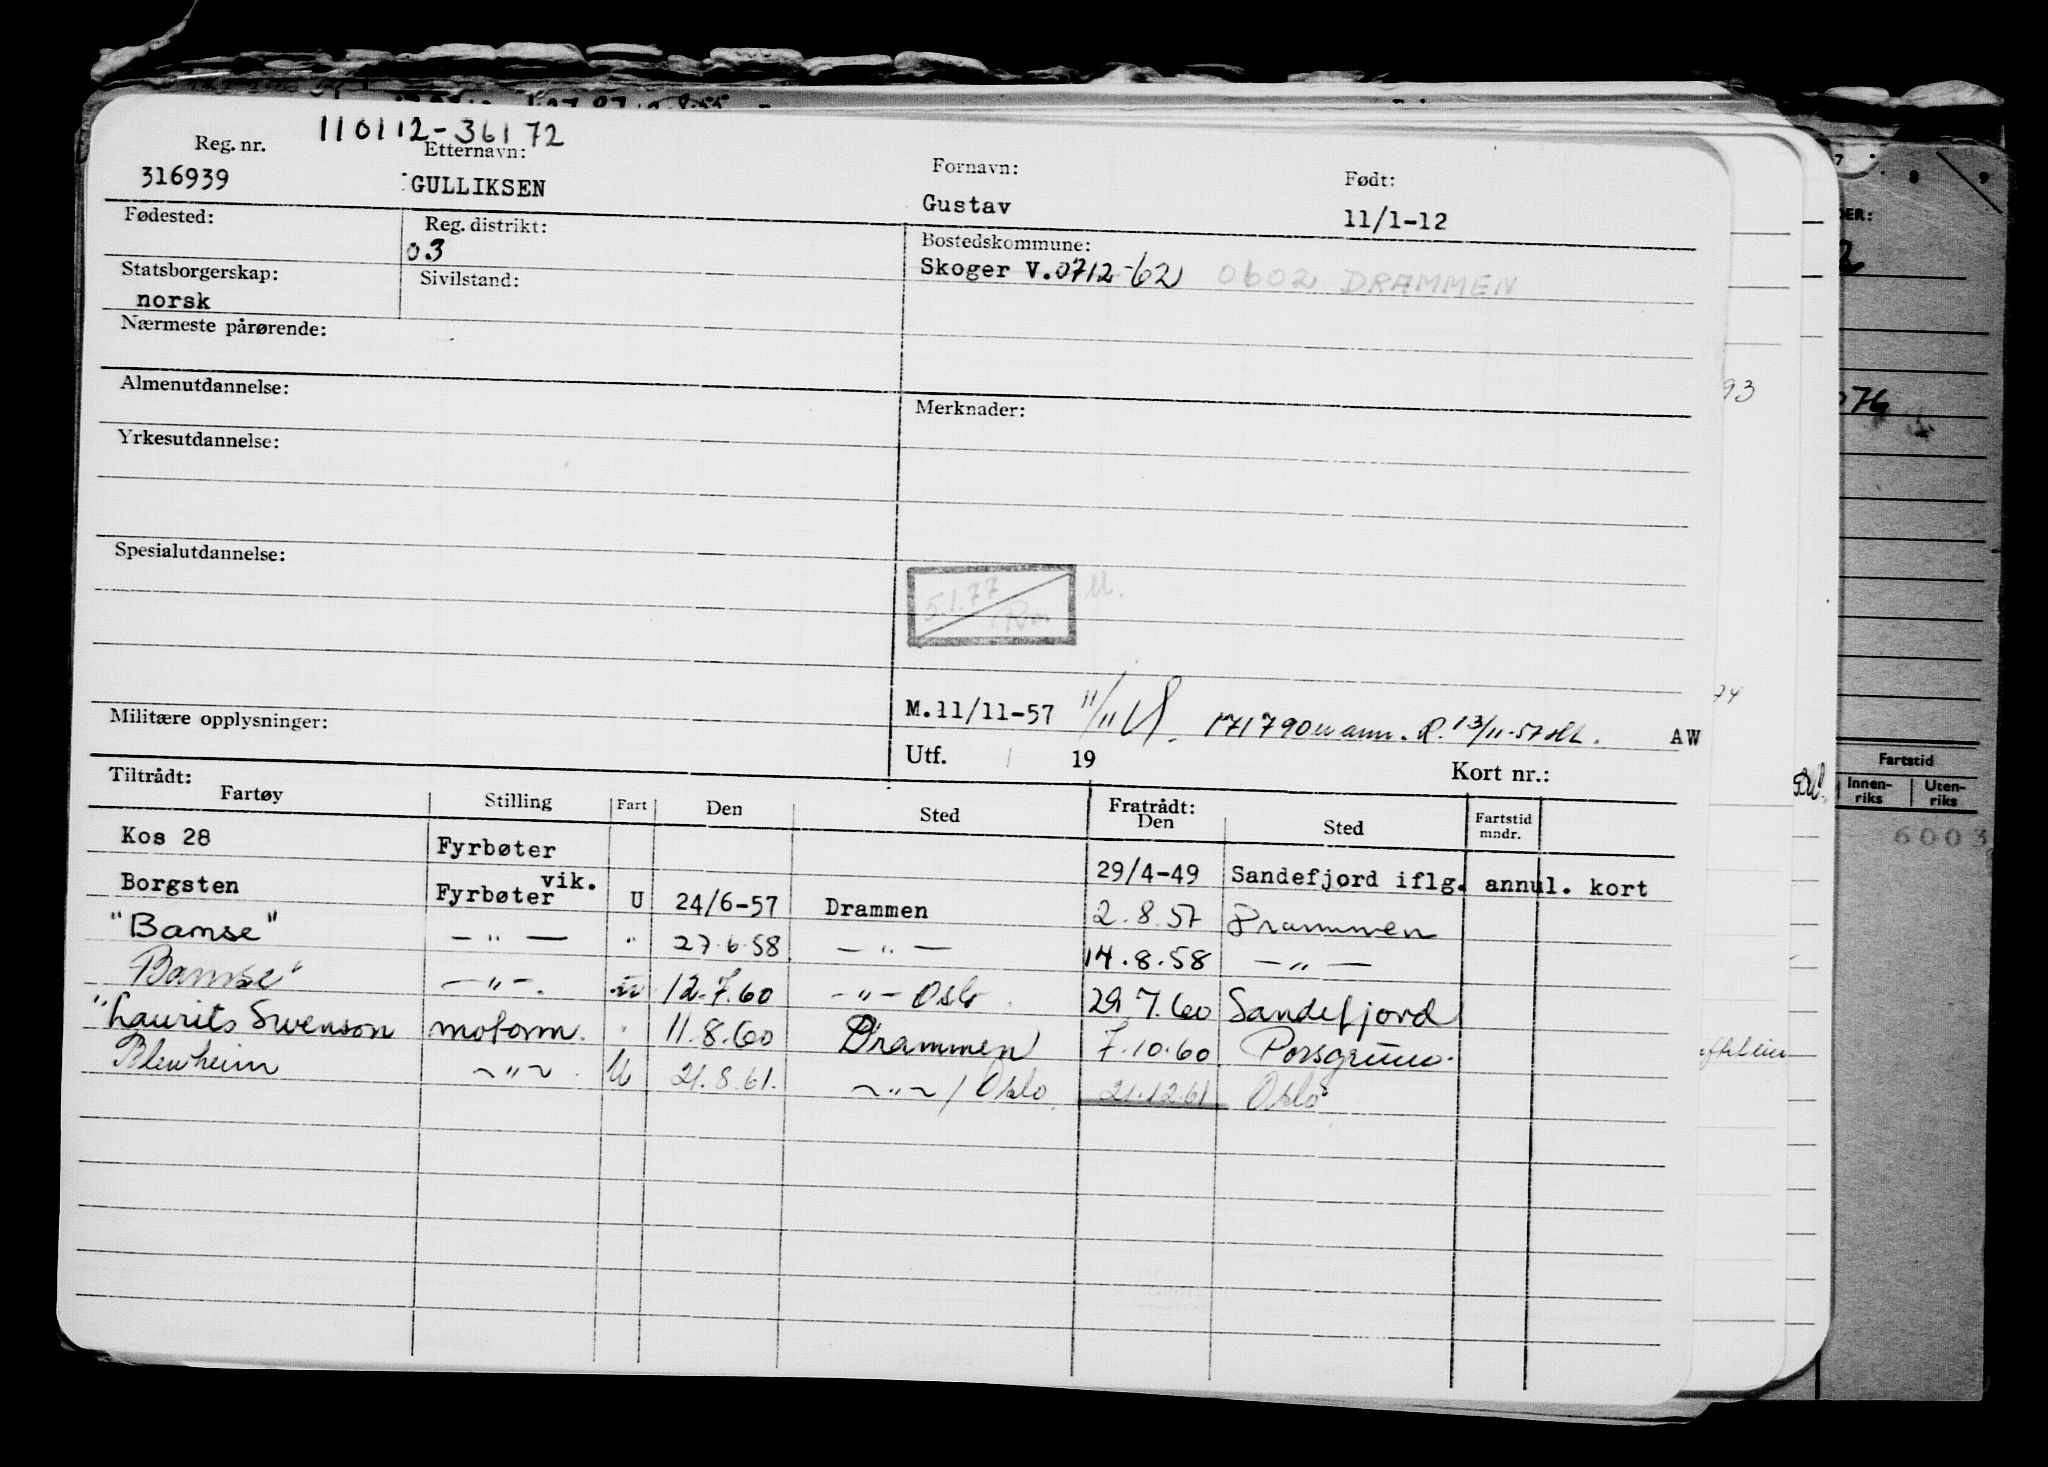 110112-36172
Reg. nr. Etternavn: Fornavn: Født:
316939 GULLIKSEN Gustav 11/1-12
Fødested: Reg. distrikt: Bostedskommune:
03 Skoger V.0712-62 0602 DRAMMEN
Statsborgerskap: Sivilstand:
norsk
Nærmeste pårørende:
Almenutdannelse: Merknader:
Yrkesutdannelse:
Spesialutdannelse:
5.1.77 U.
M.11/11-57 11/11 171790 mann. R. 13/11-57 AW
Militære opplysninger: Utf. 19 Kort nr.:
Tiltrådt: Fratrådt:
Fartøy Stilling Fart Den Sted Den Sted Fartstid mndr.
Kos 28 Fyrbøter 29/4-49 Sandefjord iflg. annul. kort
Borgsten Fyrbøter vik. U 24/6-57 Drammen 2.8.57 Drammen
"Bamse" — " — " 27.6.58 — " — 14.8.58 — " —
Bamse" — " —. u 12.7.60 — " — Oslo 29.7.60 Sandefjord
"Laurits Swenson motorm. " 11.8.60 Drammen 7.10.60 Porsgrunn.
Blenheim ~ " ~ U 21.8.61. ~ " ~ / Oslo 21.12.61 Oslo
93
76
74
DER:
7 8 9
Fartstid
Innen-riks Uten-riks
6003